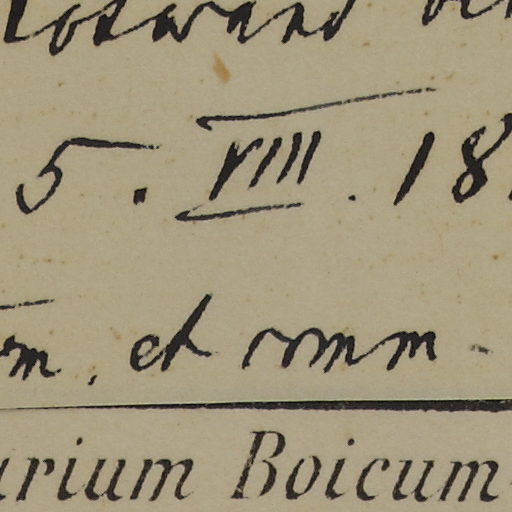 Rotwand
5. VIII. 18
m, et comm.
arium Boicum